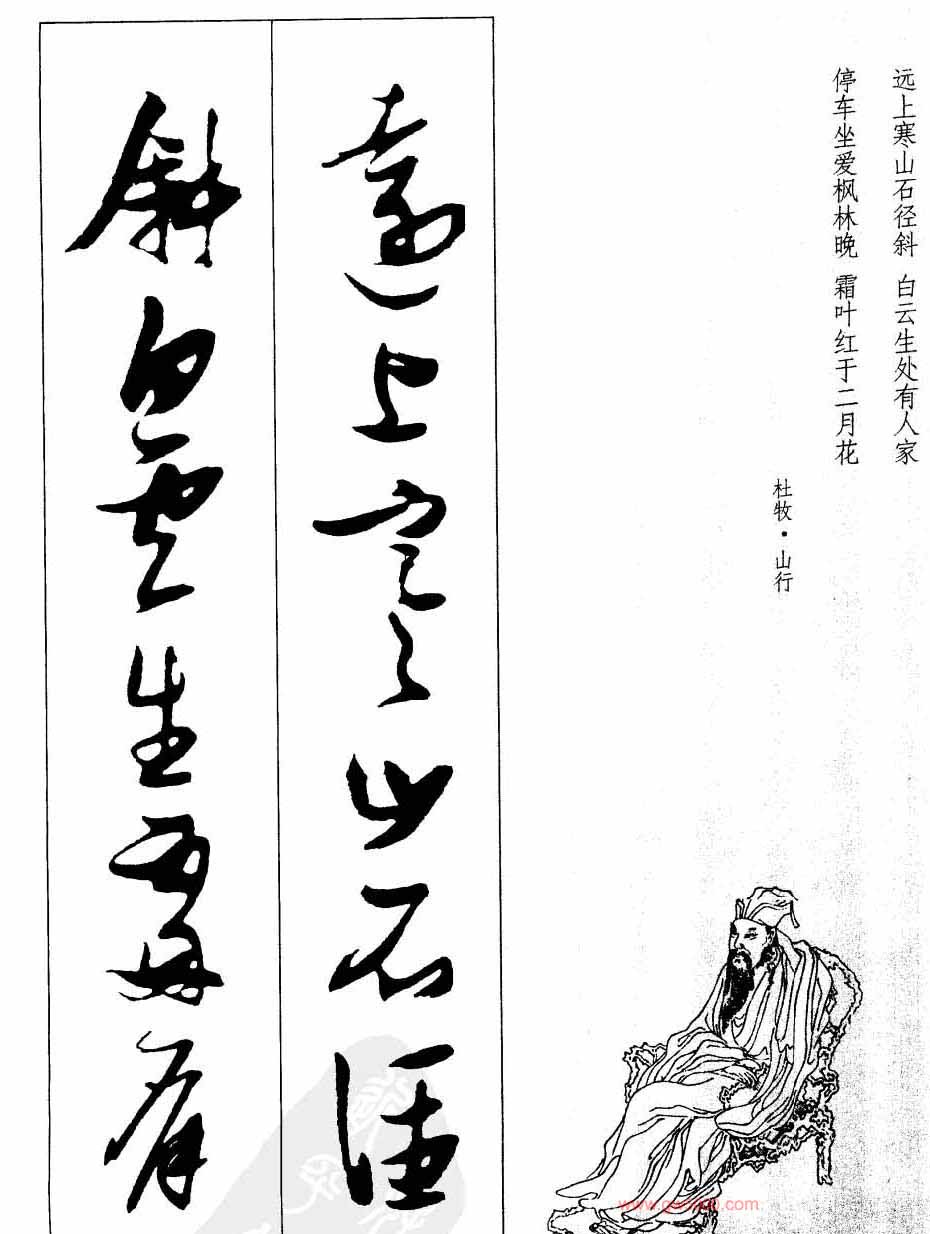 远上寒山石径斜 白云生处有人家
停车坐爱枫林晚 霜叶红于二月花
杜牧·山行
遠上寒山石徑
斜白雲生處有